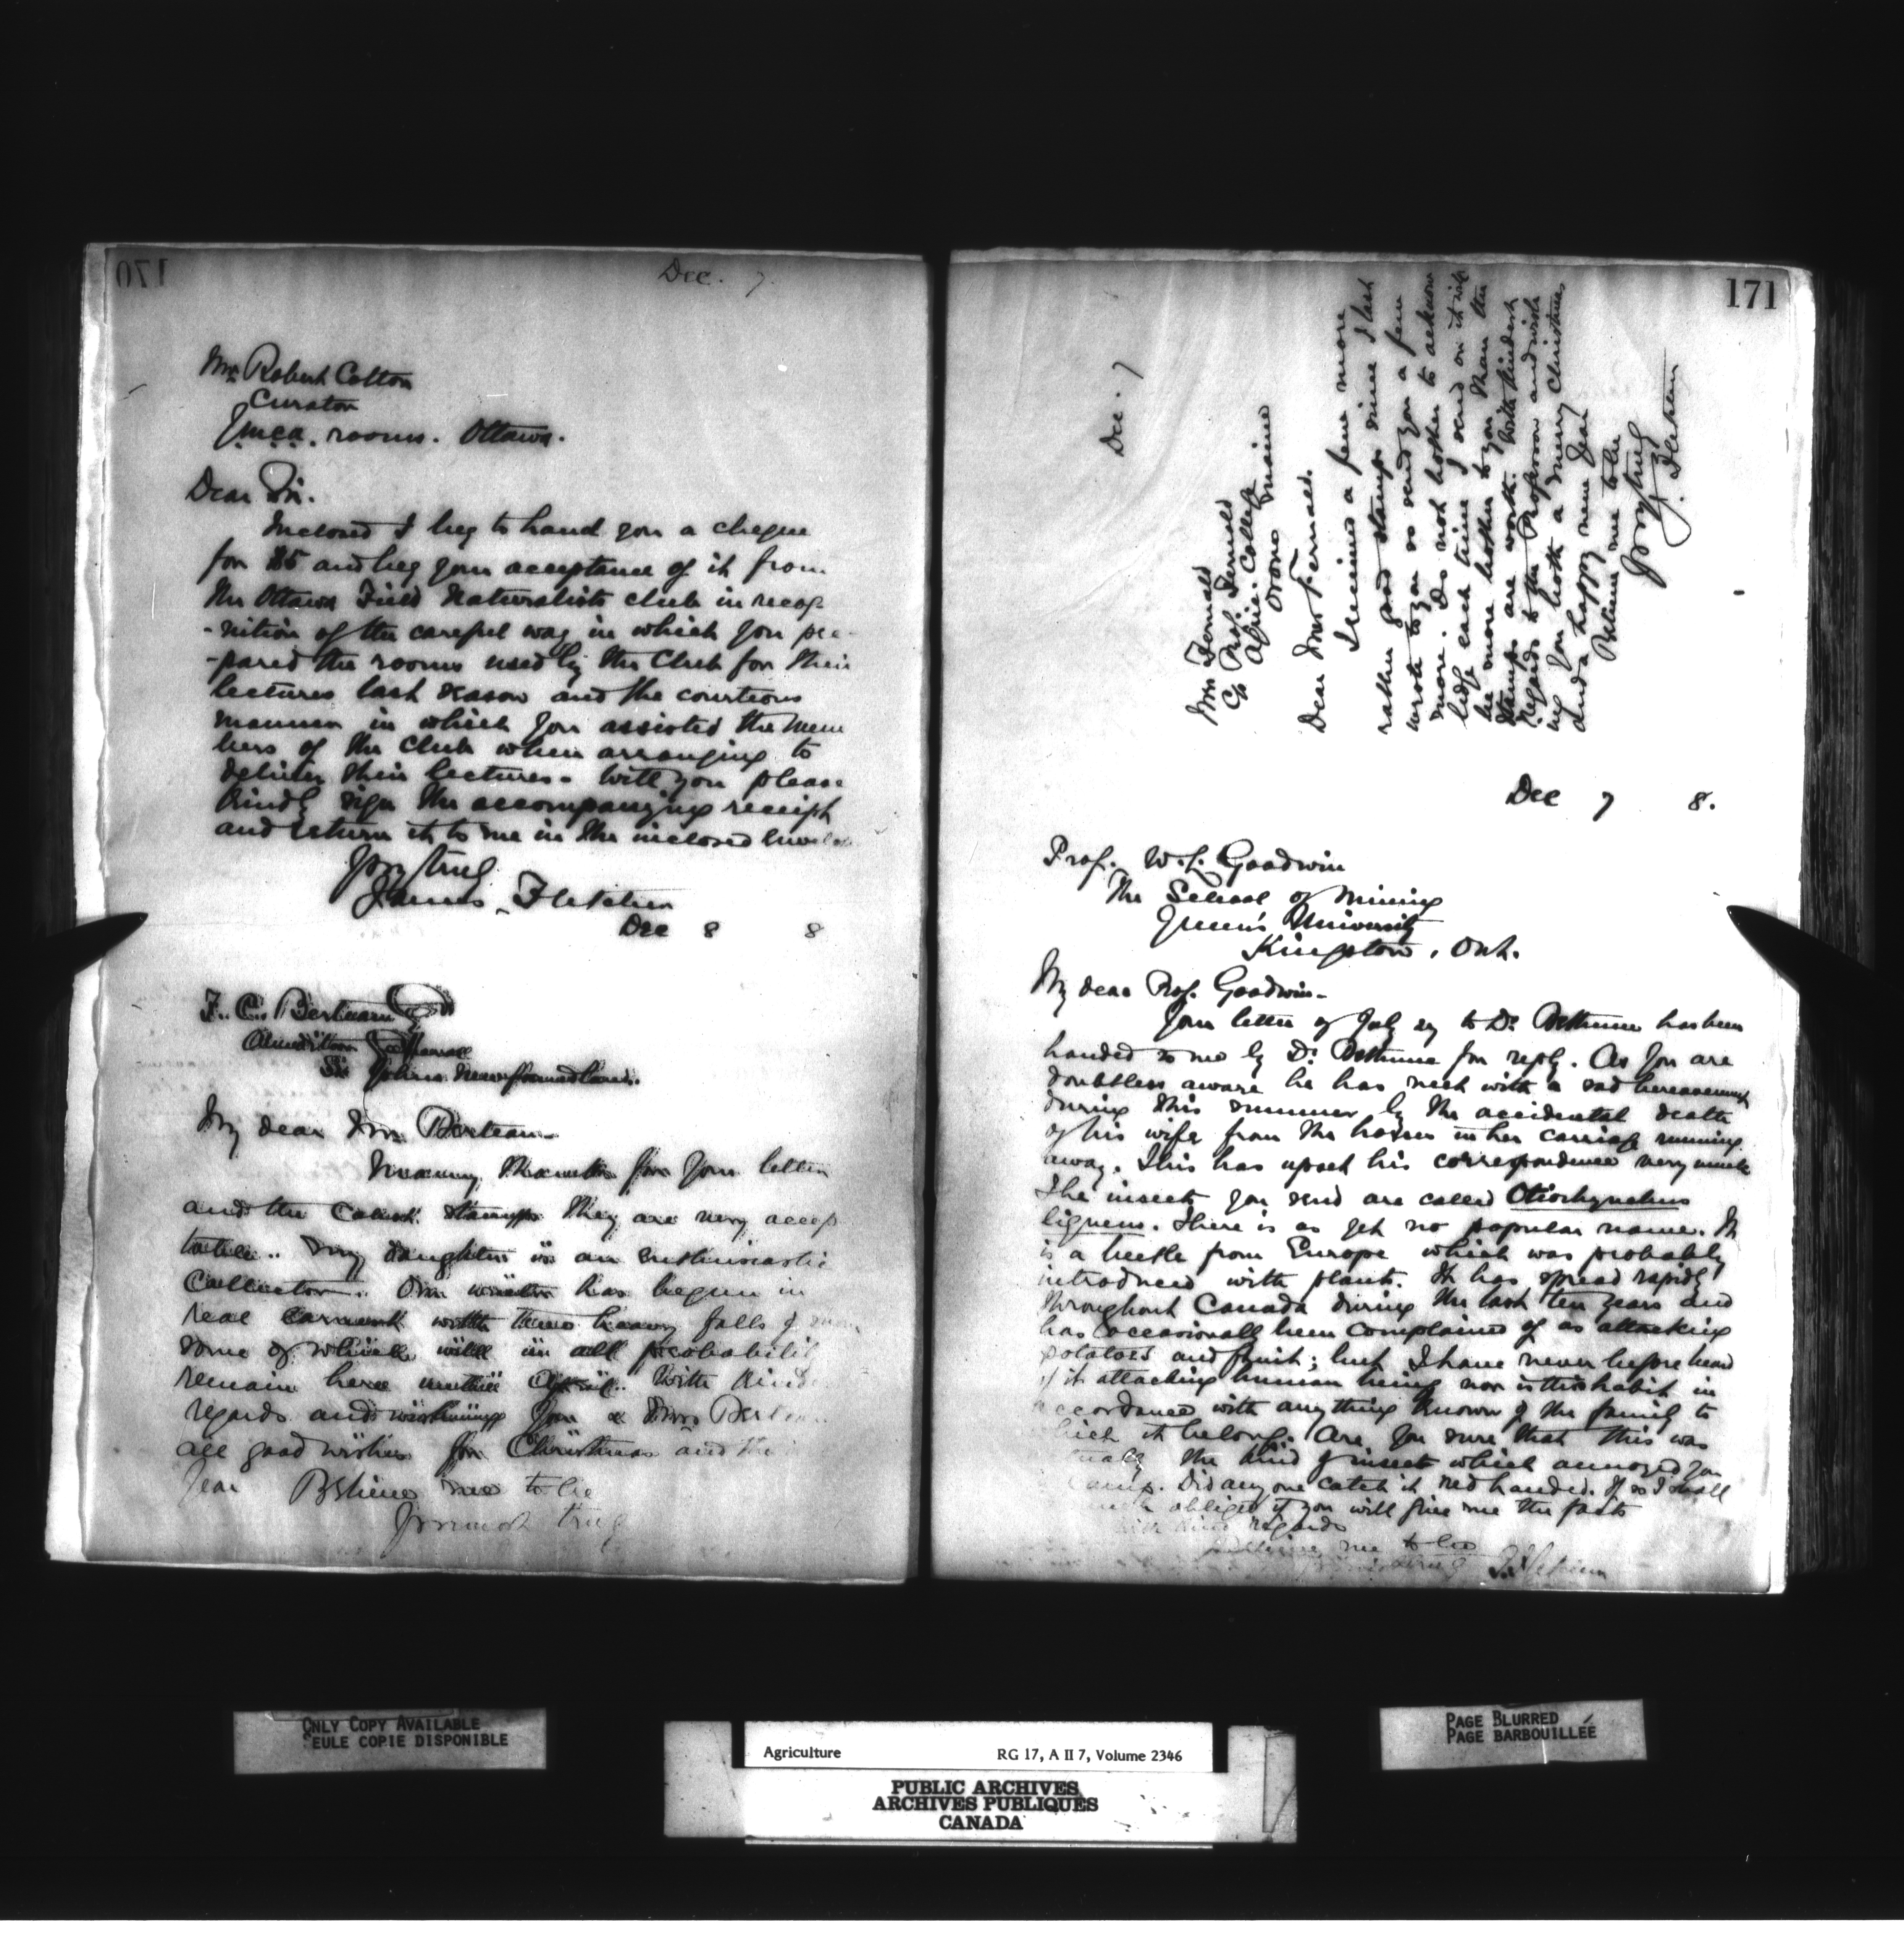 170
Dec. 7.
Mr. Robert Cotton
Curator
Y.m.c.a. rooms. Ottawa.
Dear Sir.
Inclosed I beg to hand you a cheque
for $5 and beg your acceptance of it from
the Ottawa Field Naturalists club in recog-
-nition of the careful way in which you pre-
-pared the rooms used by the Club for their
lectures last season and the courteous
manner in which you assisted the mem
bers of the club when arranging to
deliver their lectures. Will you please
kindly sign the accompanying receipt
and return it to me in the inclosed
Yours truly
James Fletcher
Dec 8 8
F. C. Berteau
St. Johns Newfoundland.
My dear Mr. Berteau
Many thanks for your letter
and the stamps they are very accep
table. My daughter is an enthusiastic
Collector. Our winter has begun in
real earnest with three heavy falls of snow
some of which will in all probability
remain here until April. With kind
regards and wishing you & Mrs Berteau
all good wishes for Christmas and the
Year Believe me to be
Yours most truly
171
Dec. 7
Mrs Fernald
C/o Prof. Fernald
Agric. College
Orono Maine
Dear Mrs Fernald.
I received a few more
rather good stamps since I last
wrote to you so send you a few
more. Do not bother to acknow
ledge each time I send on it will
be more bother to you than the
stamps are worth. With kindest
Regards to the Professor and wish
ing you both a merry Christmas
and a happy new Year
Believe me to be
Yours truly
J. Fletcher
Dec 7 8.
Prof. W. L. Goodwin
The School of Mining
Queen's University
Kingston, Ont.
My dear Prof. Goodwin-
Your letter of July 29 to Dr. Bethune has been
handed to me by Dr. Bethune for reply. As you are
doubtless aware he has met with a sad bereavement
during this summer by the accidental death
of his wife from the horses in her carriage running
away. This has upset his correspondence very much
The insects you send are called Otiorhynchus
ligneus. There is as yet no popular name. It
is a beetle from Europe which was probably
introduced with plants. It has spread rapidly
throughout Canada during the last ten years and
has occasionally been complained of as attacking
potatoes and fruit; but I have never before heard
of it attacking human beings nor is this habit in
accordance with anything known of the family to
which it belongs. Are you sure that this was
the kind of insect which annoyed you
camp. Did any one catch it red handed. If so I shall
obliged if you will give me the facts
with kind regards
Believe me to be
Fletcher
ONLY COPY AVAILABLE
SEULE COPIE DISPONIBLE
Agriculture RG 17, A II 7, Volume 2346
PUBLIC ARCHIVES
ARCHIVES PUBLIQUES
CANADA
PAGE BLURRED
PAGE BARBOUILLÉE